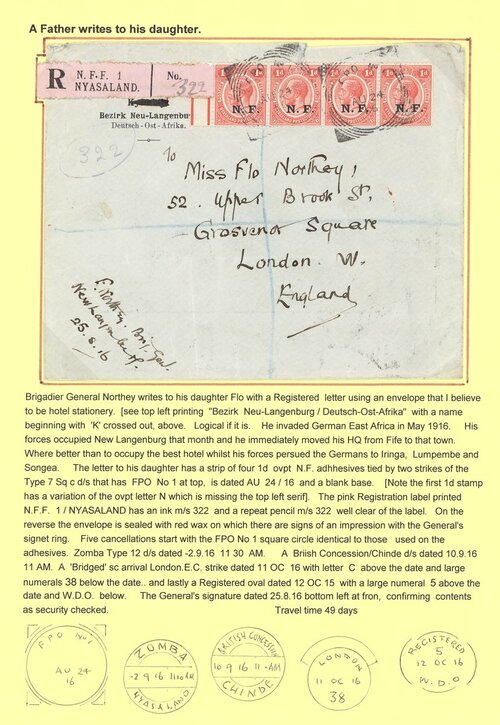 A Father writes to his daughter.
R
N. F. F. 1
NYASALAND.
No.
322
1d 1d 1d 1d
N. F. N. F. N. F. N. F.
Bezirk Neu-Langenbu
Deutsch-Ost-Afrika.
322
To
Miss Flo Northey,
52. Upper Brook St,
Grosvenor Square
London. W.
England
E. Northey. Brig. Gen.
New Langenburg.
25.8.16
Brigadier General Northey writes to his daughter Flo with a Registered letter using an envelope that I believe
to be hotel stationery. [see top left printing "Bezirk Neu-Langenburg / Deutsch-Ost-Afrika" with a name
beginning with 'K' crossed out, above. Logical if it is. He invaded German East Africa in May 1916. His
forces occupied New Langenburg that month and he immediately moved his HQ from Fife to that town.
Where better than to occupy the best hotel whilst his forces persued the Germans to Iringa, Lumpembe and
Songea. The letter to his daughter has a strip of four 1d ovpt N.F. adhhesives tied by two strikes of the
Type 7 Sq c d/s that has FPO No 1 at top, is dated AU 24 / 16 and a blank base. [Note the first 1d stamp
has a variation of the ovpt letter N which is missing the top left serif]. The pink Registration label printed
N.F.F. 1 / NYASALAND has an ink m/s 322 and a repeat pencil m/s 322 well clear of the label. On the
reverse the envelope is sealed with red wax on which there are signs of an impression with the General's
signet ring. Five cancellations start with the FPO No 1 square circle identical to those used on the
adhesives. Zomba Type 12 d/s dated -2.9.16 11 30 AM. A Briish Concession/Chinde d/s dated 10.9.16
11 AM. A 'Bridged' sc arrival London.E.C. strike dated 11 OC 16 with letter C above the date and large
numerals 38 below the date.. and lastly a Registered oval dated 12 OC 15 with a large numeral 5 above the
date and W.D.O. below. The General's signature dated 25.8.16 bottom left at fron, confirming contents
as security checked. Travel time 49 days
FPO No 1
AU 24
16
ZOMBA
-2 9 16 11 30 AM
NYASALAND
BRITISH CONCESSION
10 9 16 11 - AM
CHINDE
LONDON
11 OC 16
38
REGISTERED
5
12 OC 16
W.D.O